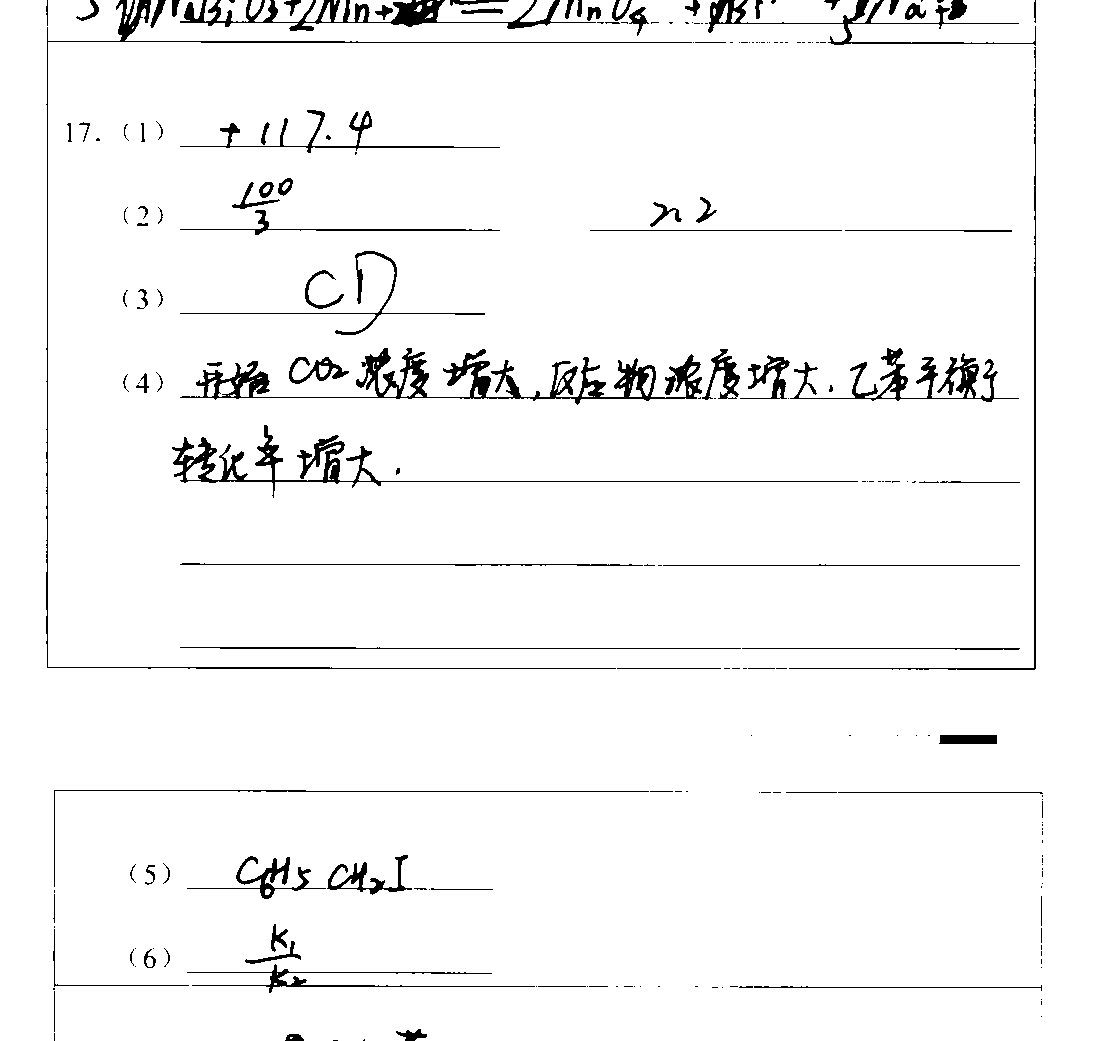 17. (1) +117.4
(2) 100/3 n2
(3) CD
(4) 开始 CO2 浓度增大,反应物浓度增大.乙苯平衡
转化率增大.
(5) C6H5CH2I
(6) K1/K2